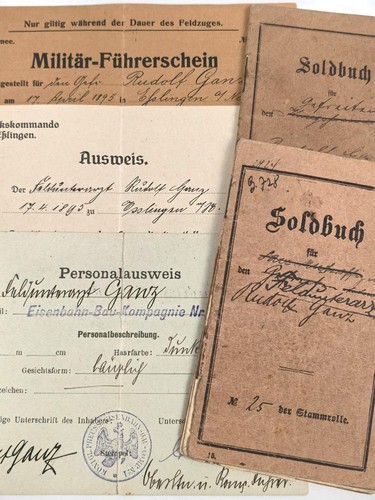 Nur gültig während der Dauer des Feldzuges.
Militär-Führerschein
den Gefr. Rudolf Ganz
am 17. April 1895 in Eßlingen a/N.
kskommando
ßlingen.
Ausweis.
Der Feldunterarzt Rudolf Ganz
17.4.1895 zu Esslingen
Personalausweis
Feldunterarzt Ganz
Eisenbahn-Bau-Kompagnie Nr.
Personalbeschreibung.
m cm Haarfarbe: Dunk
Gesichtsform: länglich
zeichen:
ige Unterschrift des Inhabers: Unter
Ganz
Soldbuch
für
Gefreiten
1914
Soldbuch
für
den
Rudolf Ganz
№ 25 der Stammrolle.